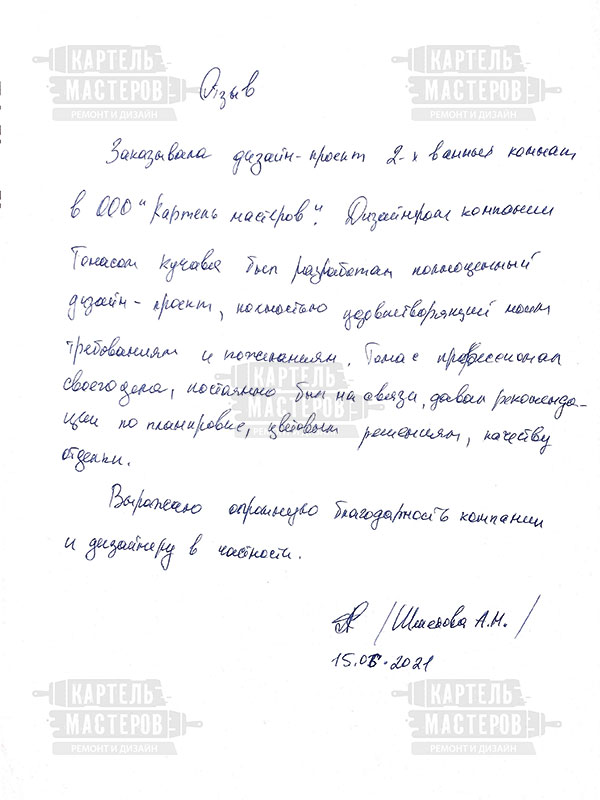 КАРТЕЛЬ МАСТЕРОВ
РЕМОНТ И ДИЗАЙН
КАРТЕЛЬ МАСТЕРОВ
РЕМОНТ И ДИЗАЙН
Отзыв
Заказывала дизайн-проект 2-х ванных комнат
в ООО "Картель мастеров". Дизайнером компании
Томасом Кучава был разработан полноценный
дизайн-проект, полностью удовлетворящий моим
требованиям и пожеланиям. Томас профессионал
своего дела, постоянно был на связи, давал рекоменда-
ции по планировке, цветовым решениям, качеству
отделки.
КАРТЕЛЬ МАСТЕРОВ
РЕМОНТ И ДИЗАЙН
Выражаю огромную благодарность компании
и дизайнеру в частности.
А.Н./
15.06.2021
КАРТЕЛЬ МАСТЕРОВ
РЕМОНТ И ДИЗАЙН
КАРТЕЛЬ МАСТЕРОВ
РЕМОНТ И ДИЗАЙН